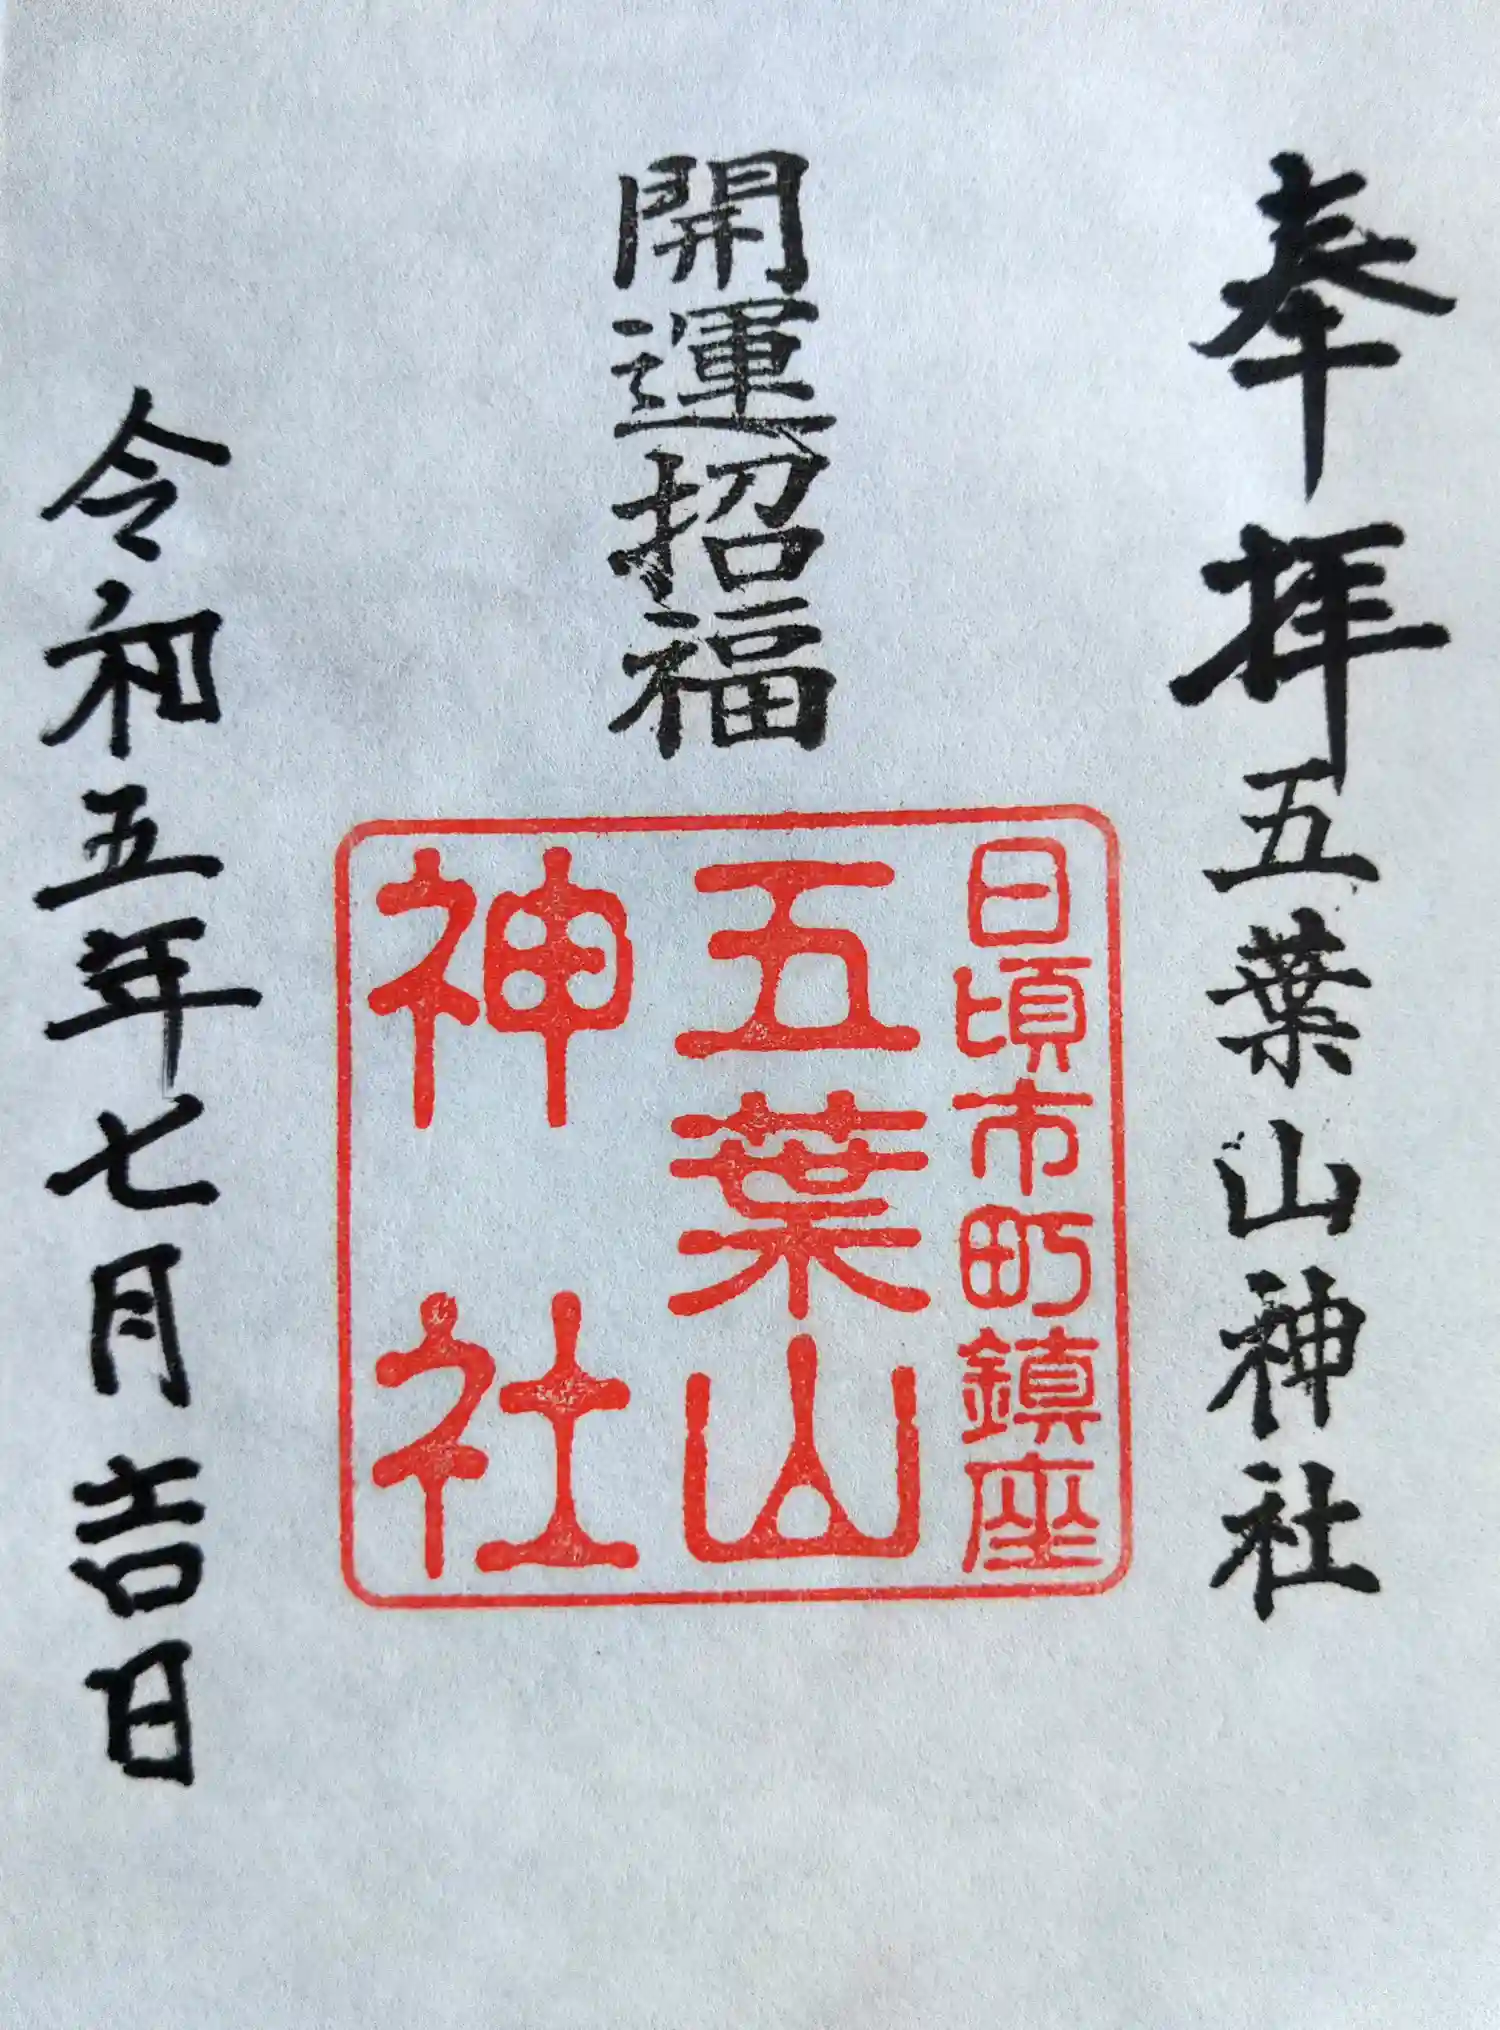 奉拝 五葉山神社
開運招福
日頃市町鎮座
五葉山
神社
令和五年七月吉日